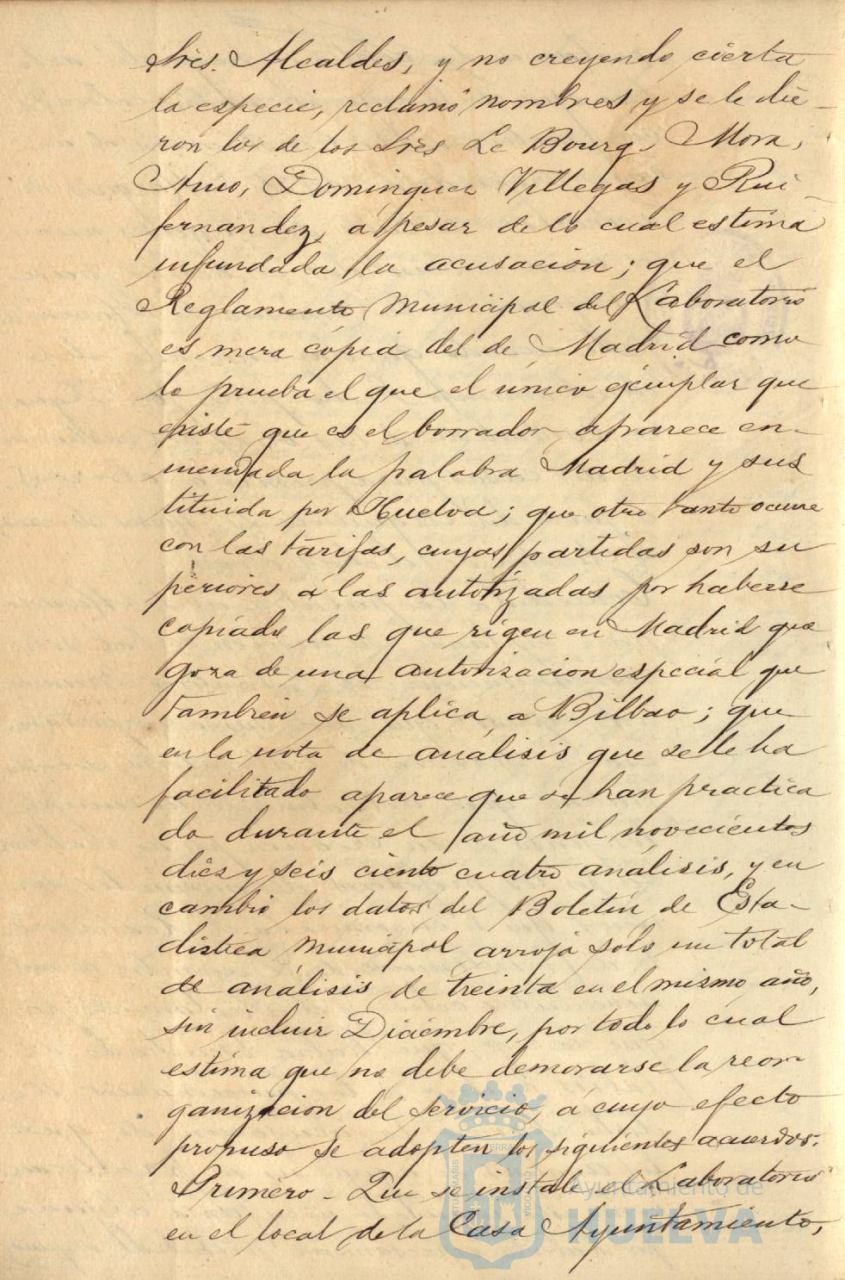 Sres. Alcaldes, y no creyendo cierta
la especie, reclamó nombres y se le die-
ron los de los Sres Le Bourg, Mora,
Amo, Dominguez Villegas y Rui-
fernandez, á pesar de lo cual estima
infundada la acusación; que el
Reglamento Municipal del Laboratorio
es mera copia del de Madrid como
lo prueba el que el único ejemplar que
existe que es el borrador aparece en-
mendada la palabra Madrid y sus
tituida por Huelva; que otro tanto ocurre
con las tarifas, cuyas partidas son su
periores á las autorizadas por haberse
copiado las que rigen en Madrid que
goza de una autorizacion especial que
tambien se aplica á Bilbao; que
en la nota de análisis que se le ha
facilitado aparece que se han practica
do durante el año mil novecientos
diez y seis ciento cuatro análisis, y en
cambio los datos del Boletín de Esta-
distica Municipal arroja solo un total
de análisis de treinta en el mismo año,
sin incluir Diciembre, por todo lo cual
estima que no debe demorarse la reor-
ganizacion del servicio, á cuyo efecto
propuso se adopten los siguientes acuerdos.
Primero - Que se instale el Laboratorio
en el local de la Casa Ayuntamiento,
Ayuntamiento de
HUELVA